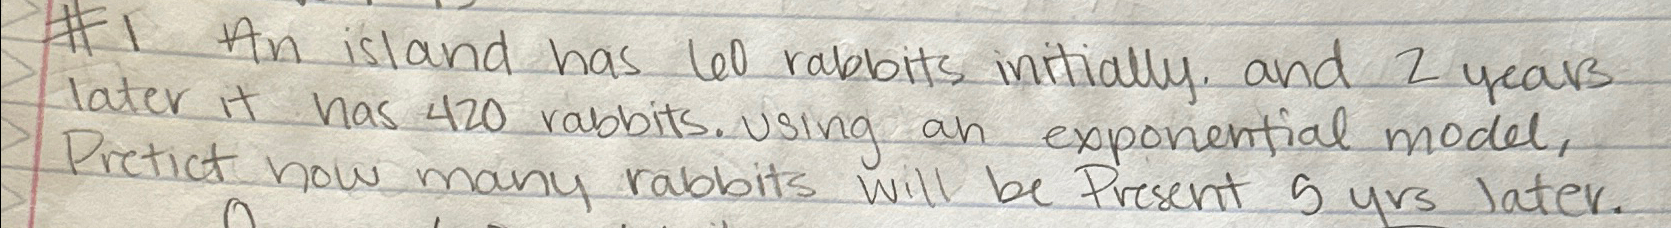 #1 An island has 60 rabbits initially. and 2 years
later it has 420 rabbits. Using an exponential model,
Pretict how many rabbits will be Present 5 yrs later.